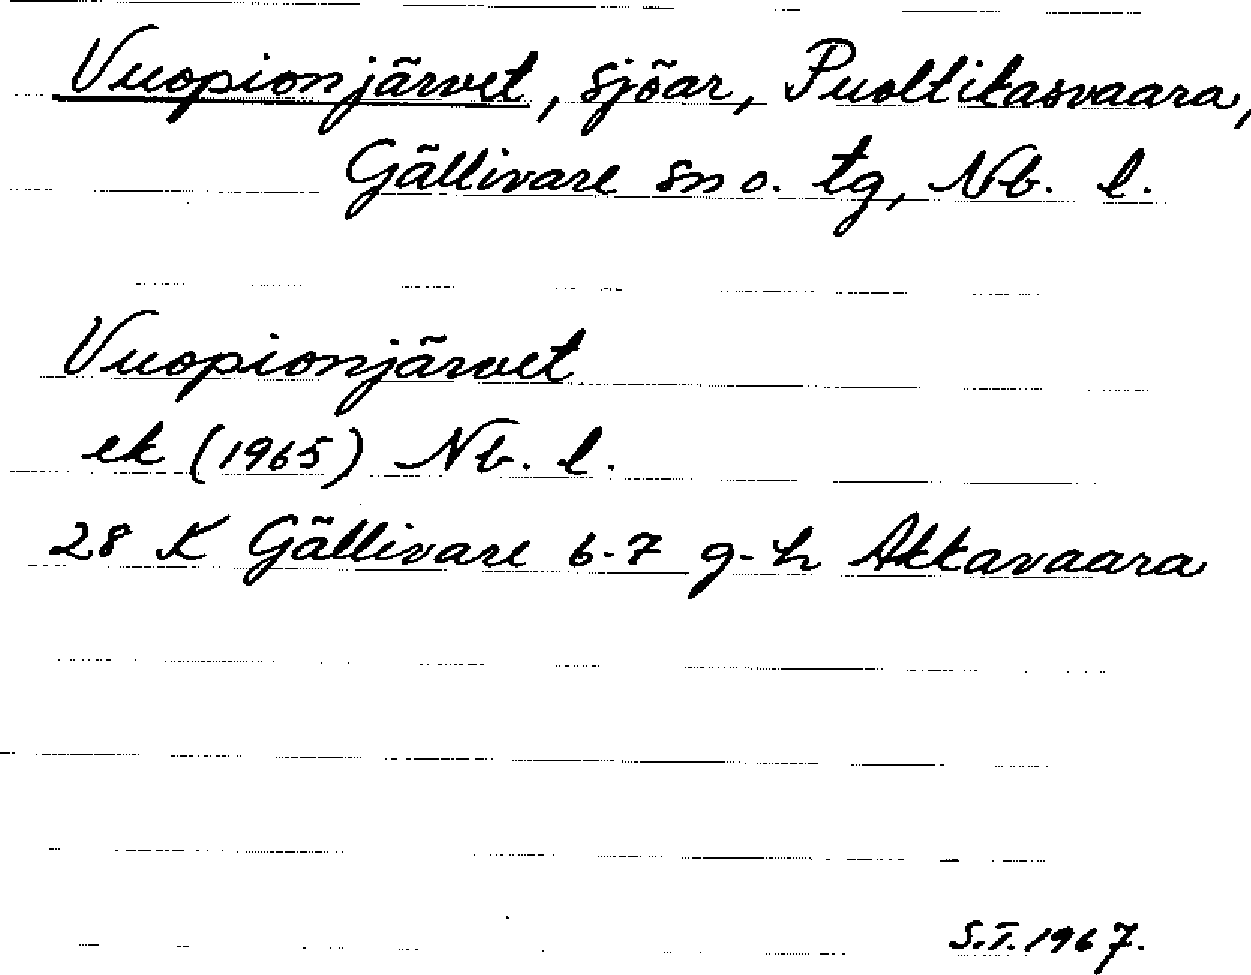 Vuopionjärvet, sjöar, Puoltikasvaara,
Gällivare sn o. tg, Nb. l.
Vuopionjärvet
ek (1965) Nb. l.
28 K Gällivare 6-7 g-h Akkavaara
S.T. 1967.